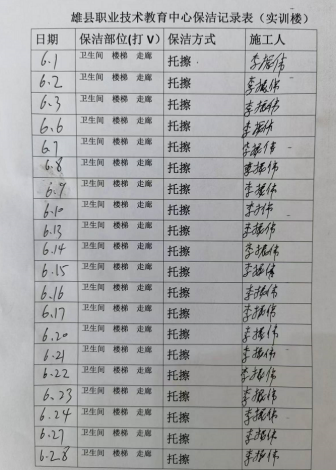 雄县职业技术教育中心保洁记录表（实训楼）
日期 保洁部位(打 V） 保洁方式 施工人
6.1 卫生间 楼梯 走廊 托擦 李振伟
6.2 卫生间 楼梯 走廊 托擦 李振伟
6.3 卫生间 楼梯 走廊 托擦 李振伟
6.6 卫生间 楼梯 走廊 托擦 李振伟
6.7 卫生间 楼梯 走廊 托擦 李振伟
6.8 卫生间 楼梯 走廊 托擦 李振伟
6.9 卫生间 楼梯 走廊 托擦 李振伟
6.10 卫生间 楼梯 走廊 托擦 李振伟
6.13 卫生间 楼梯 走廊 托擦 李振伟
6.14 卫生间 楼梯 走廊 托擦 李振伟
6.15 卫生间 楼梯 走廊 托擦 李振伟
6.16 卫生间 楼梯 走廊 托擦 李振伟
6.17 卫生间 楼梯 走廊 托擦 李振伟
6.20 卫生间 楼梯 走廊 托擦 李振伟
6.21 卫生间 楼梯 走廊 托擦 李振伟
6.22 卫生间 楼梯 走廊 托擦 李振伟
6.23 卫生间 楼梯 走廊 托擦 李振伟
6.24 卫生间 楼梯 走廊 托擦 李振伟
6.27 卫生间 楼梯 走廊 托擦 李振伟
6.28 卫生间 楼梯 走廊 托擦 李振伟